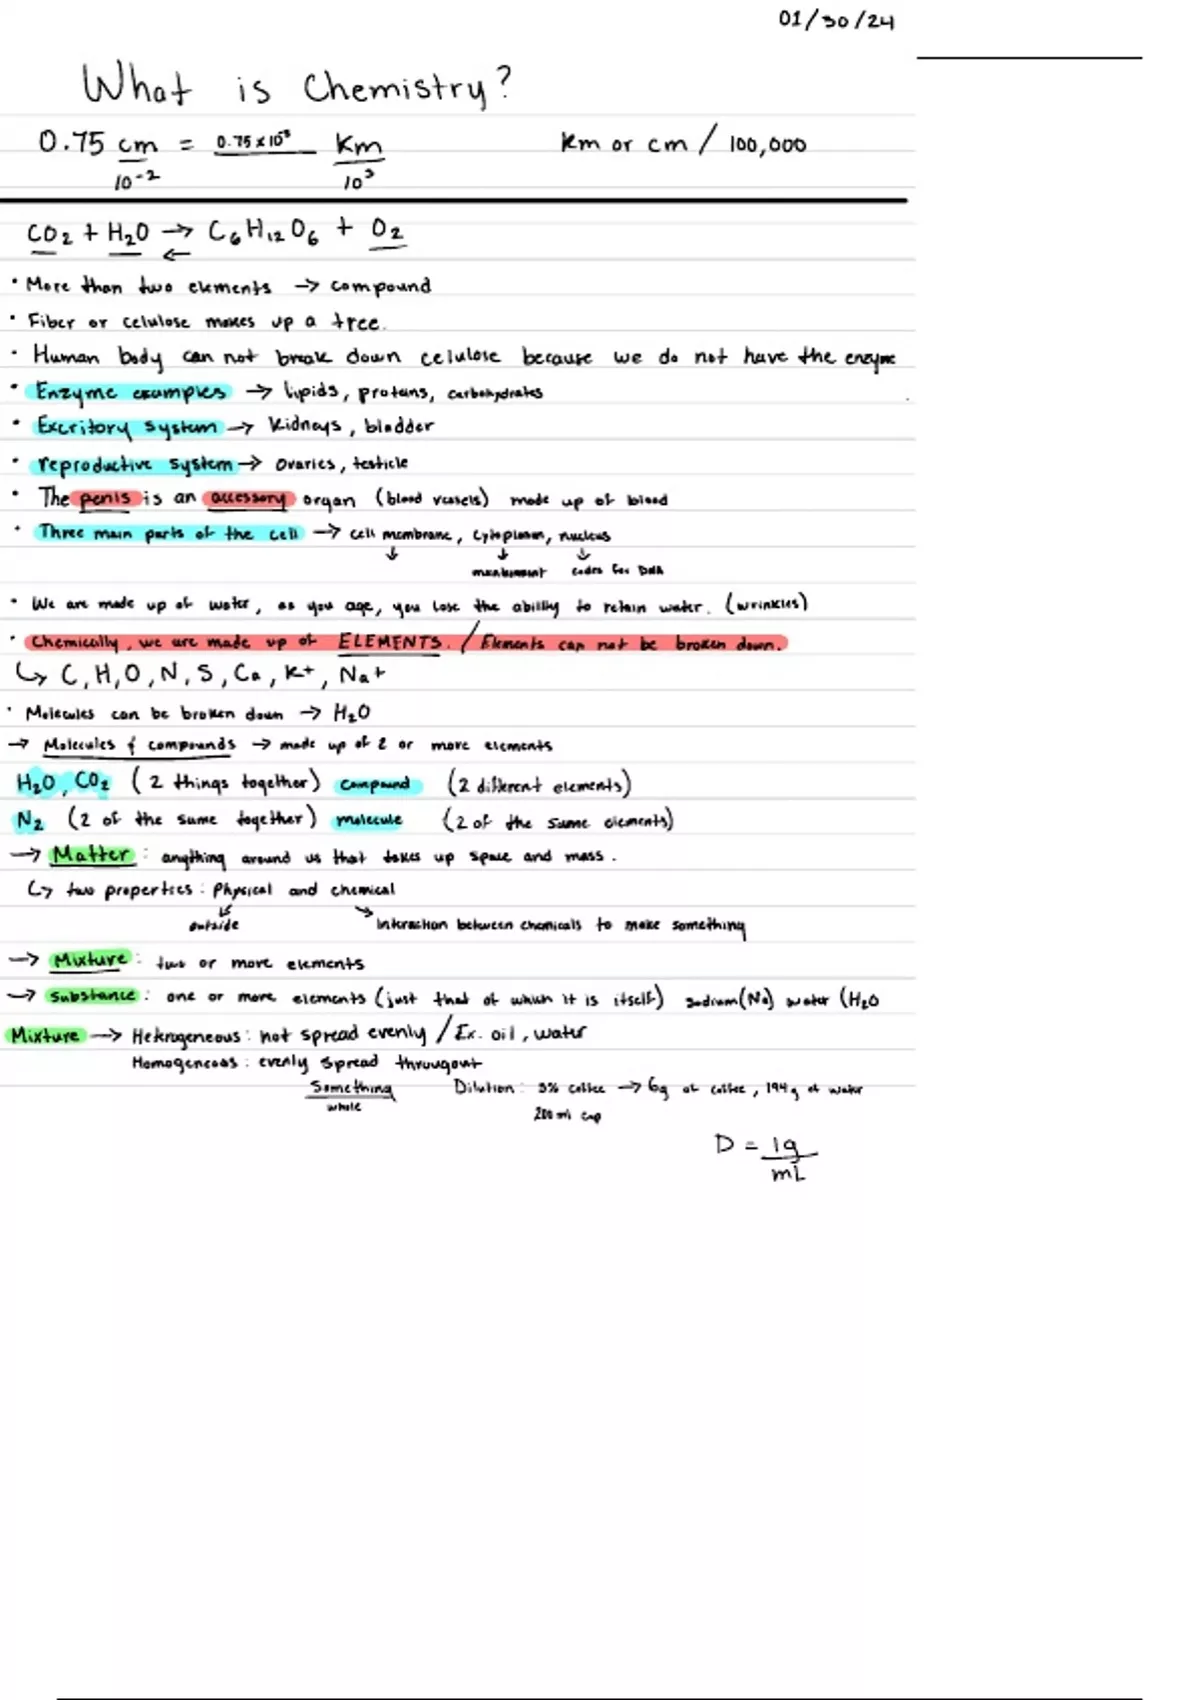 01/30/24
What is Chemistry?
0.75 cm = 0.75 x 10⁸ Km km or cm / 100,000
10⁻² 10³
CO₂ + H₂O → C₆H₁₂O₆ + O₂
←
• More than two elements → compound
• Fiber or celulose makes up a tree.
• Human body can not break down celulose because we do not have the enzyme
• Enzyme examples → lipids, proteins, carbohydrates
• Excritory system → Kidneys, bladder
• reproductive system → Ovaries, testicle
• The penis is an accessory organ (blood vessels) made up of blood
• Three main parts of the cell → cell membrane, cytoplasm, nucleus
↓ ↓ ↓
codes for DNA
• We are made up of water, as you age, you lose the ability to retain water. (wrinkles)
• Chemically, we are made up of ELEMENTS. / Elements can not be broken down.
↳ C, H, O, N, S, Ca, K+, Na+
• Molecules can be broken down → H₂O
→ Molecules & compounds → made up of 2 or more elements
H₂O, CO₂ (2 things together) compound (2 different elements)
N₂ (2 of the same together) molecule (2 of the same elements)
→ Matter: anything around us that takes up space and mass.
↳ two properties: Physical and chemical
outside interaction between chemicals to make something
→ Mixture: two or more elements
→ Substance: one or more elements (just that of which it is itself) sodium (Na) water (H₂O
Mixture → Heterogeneous: not spread evenly / Ex. oil, water
Homogeneous: evenly spread througout
Something Dilution: 3% coffee → 6g of coffee, 194g of water
whole 200 ml cup
D = 1g
mL